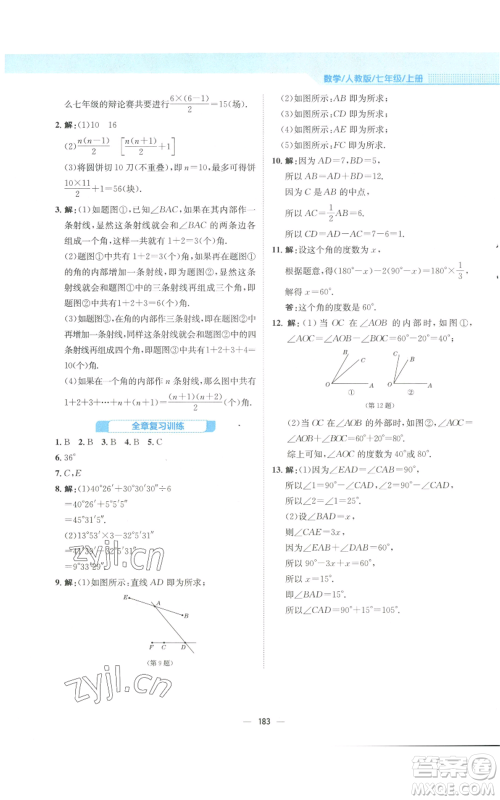 数学/人教版/七年级/上册
么七年级的辩论赛共要进行6×(6−1)/2=15(场).
2. 解:(1)10 16
(2)n(n−1)/2 [n(n+1)/2+1]
(3)将圆饼切10刀(不重叠),则最多可得饼
10×11/2+1=56(块).
3. 解:(1)如题图①,∠BAC,如在其内部作一
条射线,显然这条射线就会和∠BAC的两条边各
组成一个角,这样一共就有1+2=3(个)角.
(2)题图①中共有1+2=3(个)角,如果在题图①中
的角的内部再增加一条射线,即为题图②,显然这
条射线就会和图中的三条射线再组成三个角,即题图
②中共有1+2+3=6(个)角.
(3)如题图③,在角的内部作三条射线,即在题图②
中再增加一条射线,同样这条射线就会和图中的四
条射线再组成四个角,即题图③中共有1+2+3+4=
10(个)角.
(4)综上所述,如果在一个角的内部作n条射线,则图中共有
1+2+3+…+n+(n+1)=(n+1)(n+2)/2(个)角.
全章复习训练
1. B 2. B 3. B 4. B 5. C
6. 36°
7. C,E
8. 解:(1)40°26′+30°30′30″÷6
=40°26′+5°5′5″
=45°31′5″.
(2)13°53′×3−32°5′31″
=41°39′−32°5′31″
=9°33′29″.
9. 解:(1)如图所示:直线AD即为所求;
E A B
F C D
(第9题)
(2)如图所示:AB即为所求;
(3)如图所示:AE即为所求;
(4)如图所示:DB即为所求;
(5)如图所示:FC即为所求.
10. 解:因为AD=7,BD=5,
所以AB=AD+BD=12.
因为点C是线段AB的中点,
所以AC=1/2AB=6.
所以CD=AD−AC=7−6=1.
11. 解:设这个角的度数为x,
根据题意,得(180°−x)−2(90°−x)=180°×1/3.
解得x=60°.
答:这个角的度数是60°.
12. 解:(1)当OC在∠AOB的内部时,如图①,
∠AOC=∠AOB−∠BOC=60°−20°=40°;
B C O A ①
C B O A ②
(第12题)
(2)当OC在∠AOB的外部时,如图②,
∠AOC=∠AOB+∠BOC=60°+20°=80°,
综上所述,∠AOC的度数为40°或80°.
13. 解:(1)因为∠EAD=∠1+∠CAD=90°,
所以∠1=90°−∠CAD=90°−60°=30°.
所以∠1=30°.
(2)设∠BAD=x,
则∠CAE=3x,
所以90°−x+60°=3x−x.
所以x=15°.
所以∠BAD=15°.
所以∠CAD=90°−15°=75°.
183
zyjl.cn
zyjl.cn
答案圈
MXQE.COM